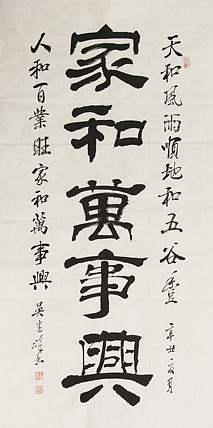 天和風雨順地和五谷豐
辛丑
家和萬事興
人和百業旺家和萬事興
吴